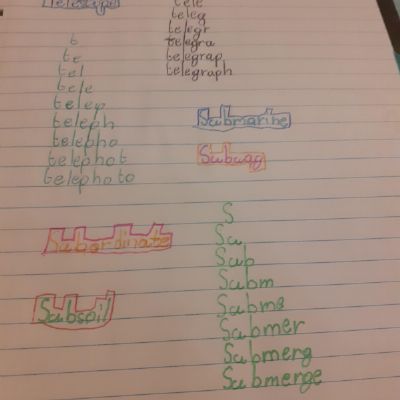 Teletype
t
te
tel
tele
telep
teleph
telepho
telephot
telephoto
tele
teleg
telegr
telegra
telegrap
telegraph
Submarine
Subway
Subordinate
Subsoil
S
Su
Sub
Subm
Subme
Submer
Submerg
Submerge